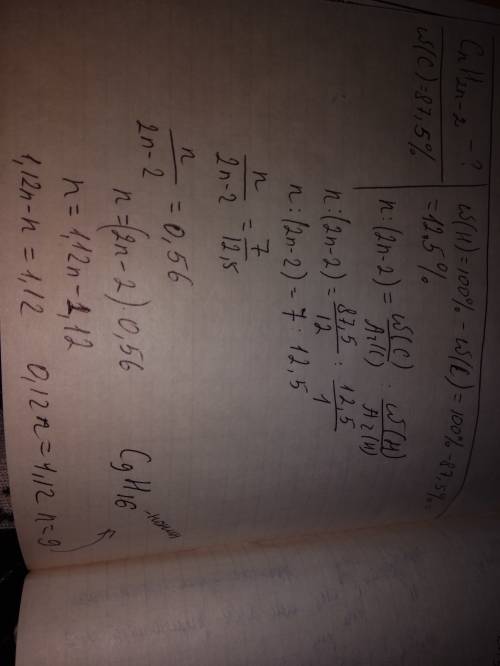 CnH2n-2 - ?
W(C) = 87,5%
W(H) = 100% - W(C) = 100% - 87,5% =
= 12,5%
n : (2n-2) = W(C)/Ar(C) : W(H)/Ar(H)
n : (2n-2) = 87,5/12 : 12,5/1
n : (2n-2) = 7 : 12,5
n/2n-2 = 7/12,5
n/2n-2 = 0,56
n = (2n-2) · 0,56
n = 1,12n - 1,12
1,12n - n = 1,12 0,12n = 1,12 n = 9
C9H16 - нонин